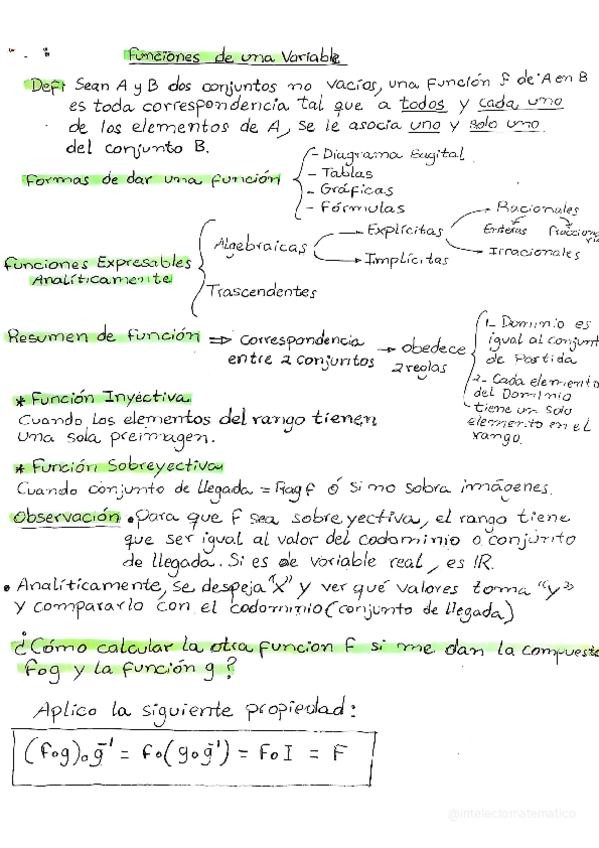 Funciones de una Variable
Def: Sean A y B dos conjuntos no vacíos, una función f de A en B
es toda correspondencia tal que a todos y cada uno
de los elementos de A, se le asocia uno y solo uno
del conjunto B.
Formas de dar una función
- Diagrama Sagital
- Tablas
- Gráficas
- Fórmulas
Funciones Expresables
Analíticamente
Algebraicas
Explícitas
Racionales
Enteras
Irracionales
Implícitas
Trascendentes
Resumen de función ⇒ correspondencia
entre 2 conjuntos
→ obedece
2 reglas
1- Dominio es
igual al conjunt
de Partida
2- Cada elemento
del Dominio
tiene un solo
elemento en el
rango.
* Función Inyectiva
Cuando los elementos del rango tienen
una sola preimagen.
* Función Sobreyectiva
Cuando conjunto de llegada = Rag f ó si no sobra imágenes.
Observación • Para que f sea sobreyectiva, el rango tiene
que ser igual al valor del codominio o conjunto
de llegada. Si es de variable real, es IR.
• Analíticamente, se despeja "X" y ver qué valores toma "y"
y compararlo con el codominio (conjunto de llegada)
¿Cómo calcular la otra funcion f si me dan la compuesta
fog y la función g?
Aplico la siguiente propiedad:
(fog)o g⁻¹ = fo(gog⁻¹) = foI = F
@intelectomatematico